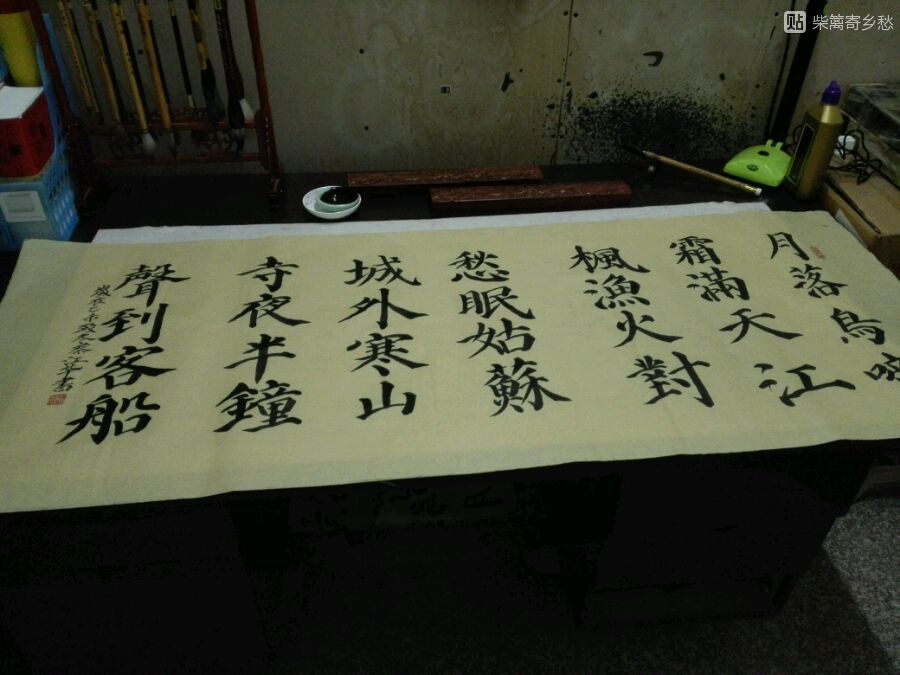 月落烏啼
霜滿天江
楓漁火對
愁眠姑蘇
城外寒山
寺夜半鐘
聲到客船
歲在乙未
書
贴 柴篱寄乡愁